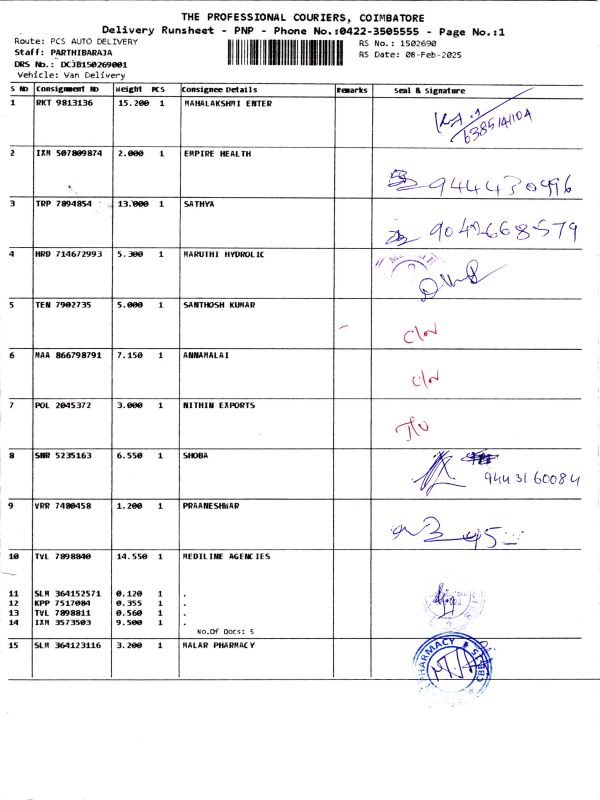 THE PROFESSIONAL COURIERS, COIMBATORE
Delivery Runsheet - PNP - Phone No.:0422-3505555 - Page No.:1
Route: PCS AUTO DELIVERY RS No.: 1502690
Staff: PARTHIBARAJA RS Date: 08-Feb-2025
DRS No.: DCJB150269001
Vehicle: Van Delivery
S No Consignment No Weight PCS Consignee Details Remarks Seal & Signature
1 RKT 9813136 15.200 1 MAHALAKSHMI ENTER
2 IXM 507809874 2.000 1 EMPIRE HEALTH
9444430496
3 TRP 7894854 13.000 1 SATHYA
4 HRD 714672993 5.300 1 MARUTHI HYDROLIC
5 TEN 7902735 5.000 1 SANTHOSH KUMAR
6 MAA 866798791 7.150 1 ANNAMALAI
7 POL 2045372 3.000 1 NITHIN EXPORTS
8 SNR 5235163 6.550 1 SHOBA
9443160084
9 VRR 7480458 1.200 1 PRAANESHWAR
10 TVL 7898840 14.550 1 MEDILINE AGENCIES
11 SLM 364152571 0.120 1 .
12 KPP 7517084 0.355 1 .
13 TVL 7898811 0.560 1 .
14 IXM 3573503 9.500 1 .
No.Of Docs: 5
15 SLM 364123116 3.200 1 MALAR PHARMACY
PHARMACY